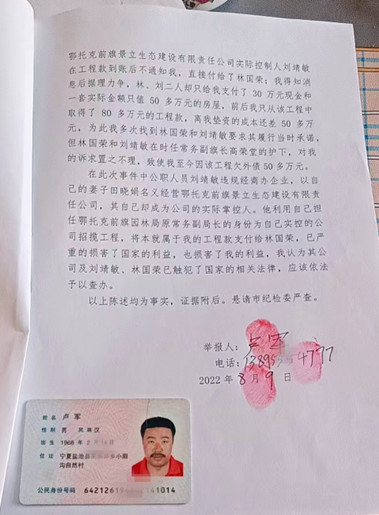 鄂托克前旗景立生态建设有限责任公司实际控制人刘靖敏
在工程款到账后不通知我，直接付给了林国荣；我得知消
息后据理力争，林、刘二人却只给我支付了 30 万元现金和
一套实际金额只值 50 多万元的房屋，前后我只从该工程中
取得了 80 多万元的工程款，离我垫资的成本还差 50 多万
元，为此我多次找到林国荣和刘靖敏要求其履行当时承诺，
但林国荣和刘靖敏在时任常务副旗长高荣堂的护下，对我
的诉求置之不理，致使我至今因该工程欠外债 50 多万元。
在此次事件中公职人员刘靖敏违规经商办企业，以自
己的妻子田晓娟名义经营鄂托克前旗景立生态建设有限责
任公司，其自己却成为公司的实际掌控人。他利用自己担任
鄂托克前旗园林局原常务副局长的身份为自己实控的公
司招揽工程，将本就属于我的工程款支付给林国荣，已严
重的损害了国家的利益，也损害了我的利益，我认为其公
司及刘靖敏、林国荣已触犯了国家的相关法律，应该依法
予以查办。
以上陈述均为事实，证据附后。恳请市纪检委严查。
举报人：卢军
电话：13895 4777
2022 年 8 月 9 日
姓名 卢军
性别 男 民族 汉
出生 1968 年 2 月 14 日
住址 宁夏盐池县 乡小阳
沟自然村
公民身份号码 6421261 141014